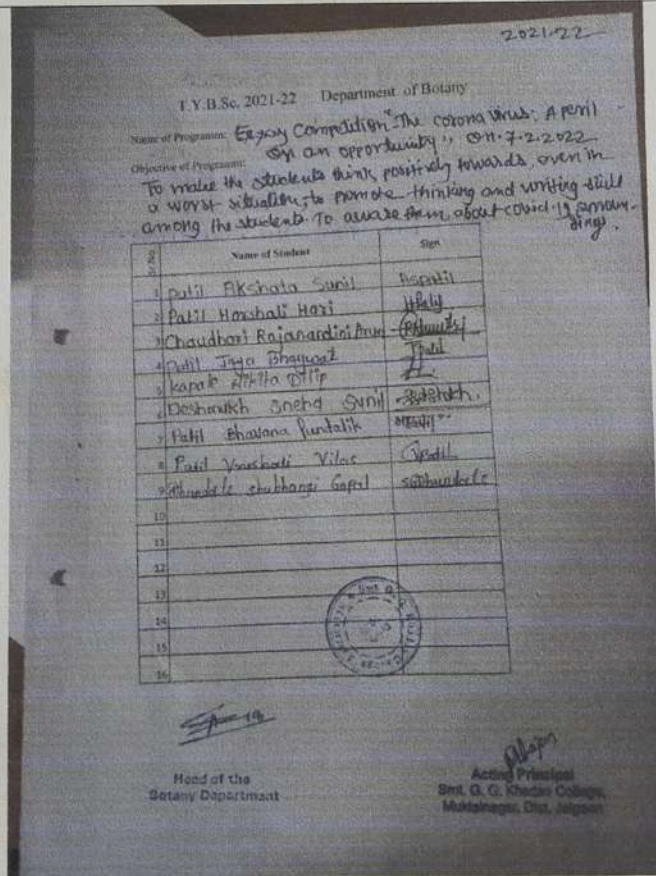 2021-22
T.Y.B.Sc. 2021-22 Department of Botany
Name of Programm: Essay Competition "The corona virus; A peril
or an opportunity", on. 7.2.2022
Objective of Programm:
To make the students think positively towards, even in
a worst situation, to promote thinking and writing skill
among the students. To aware them about covid-19
Sr.No. Name of Student Sign
1 Patil Akshata Sunil Aspatil
2 Patil Harshali Hari HPatil
3 Chaudhari Rajanandini Arun
4 Patil Jaya Bhagwat JPatil
5 Kapale Nikita Dilip
6 Deshmukh Sneha Sunil
7 Patil Bhavana Pundalik
8 Patil Vaushali Vilas Vpatil
9 Dhundale shubhangi Gopal SGDhundale
10
11
12
13
14
15
16
Head of the
Botany Department
Acting Principal
Smt. G. G. Khadse College,
Muktainagar, Dist. Jalgaon